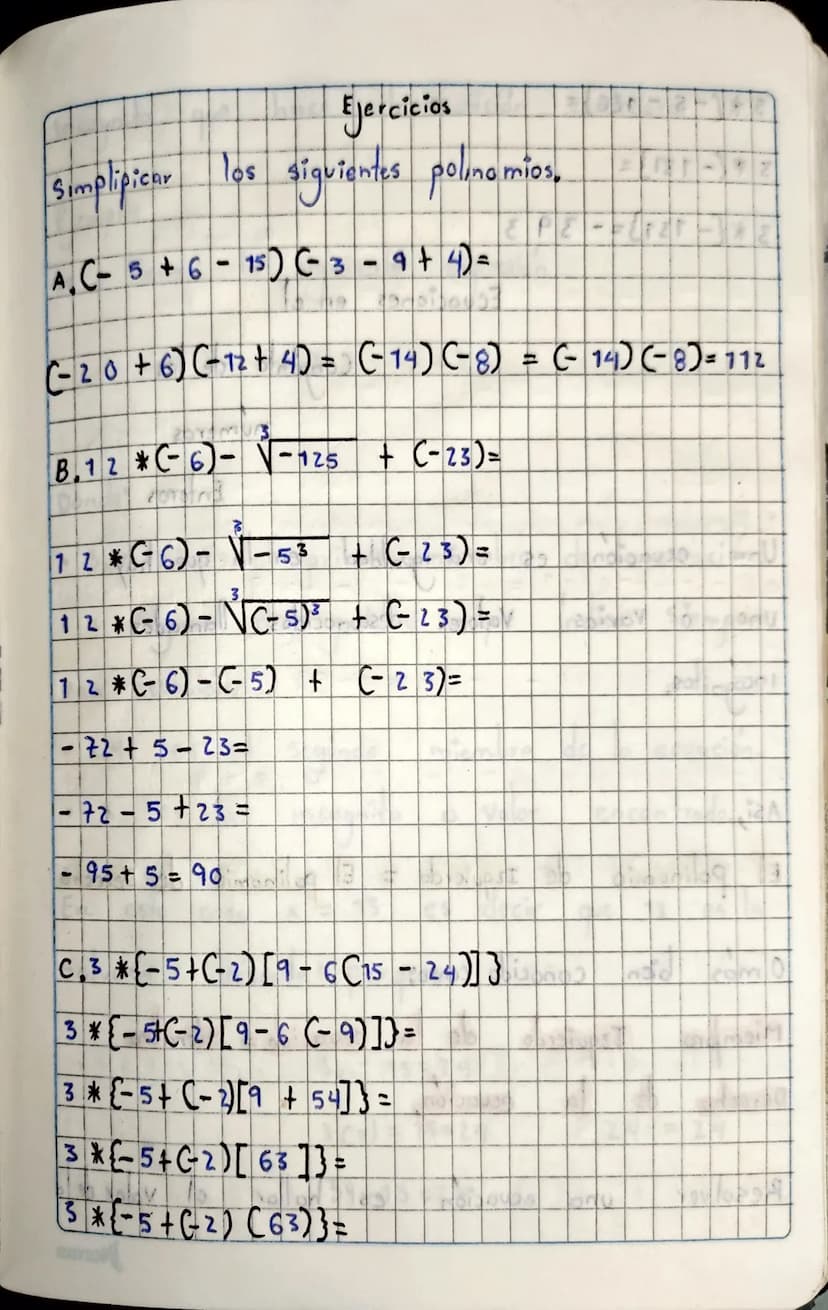 Ejercicios
Simplipicar los siguientes polinomios.
A. (- 5 + 6 - 15) (- 3 - 9 + 4) =
(- 20 + 6) (- 12 + 4) = (- 14) (- 8) = (- 14) (- 8) = 112
B. 12 * (- 6) - ∛-125 + (- 23) =
12 * (- 6) - ∛-5³ + (- 23) =
12 * (- 6) - ∛(- 5)³ + (- 23) =
12 * (- 6) - (- 5) + (- 23) =
- 72 + 5 - 23 =
- 72 - 5 + 23 =
- 95 + 5 = 90
C. 3 * {- 5 + (- 2) [9 - 6 (15 - 24)]}
3 * {- 5 + (- 2) [9 - 6 (- 9)]} =
3 * {- 5 + (- 2) [9 + 54]} =
3 * {- 5 + (- 2) [63]} =
3 * {- 5 + (- 2) (63)} =